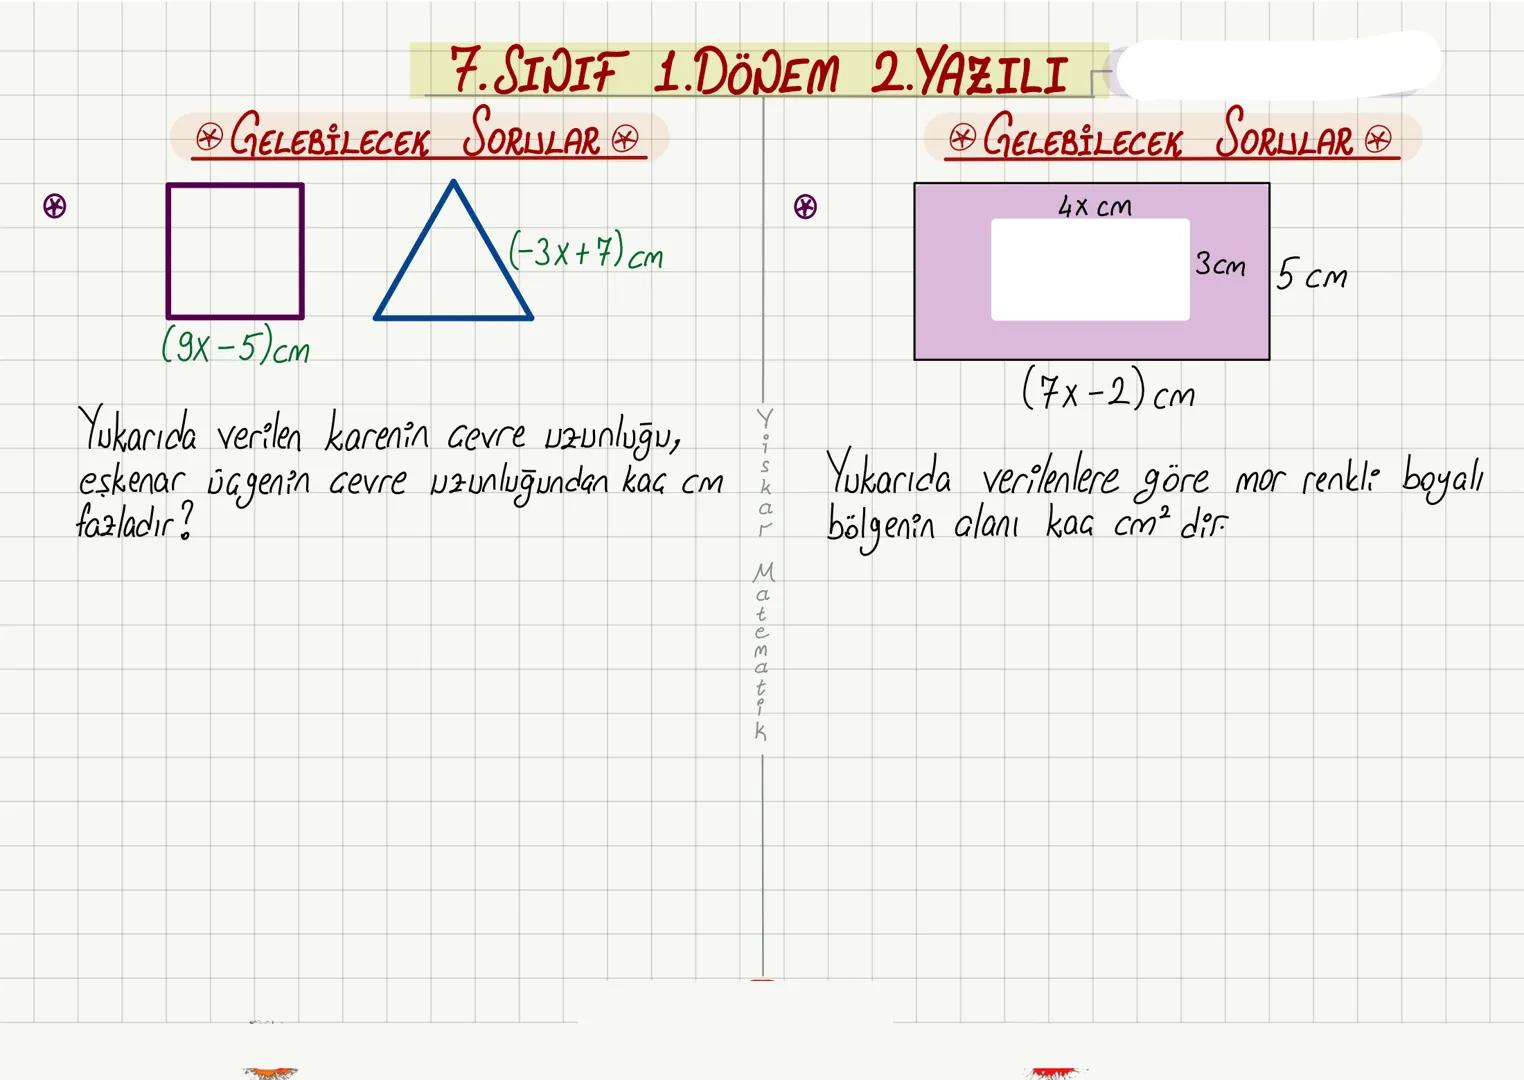 7. SINIF 1.DÖNEM 2.YAZILI
GELEBİLECEK SORULAR
(-3x+7)cm
(9x-5)cm
Yukarıda verilen karenin çevre uzunluğu,
eşkenar üçgenin çevre uzunluğundan kaç cm
fazladır?
Yiskar Matematik
GELEBİLECEK SORULAR
4x cm
3cm
5 cm
(7x-2) cm
Yukarıda verilenlere göre mor renkli boyalı
bölgenin alanı kaç cm² dir.